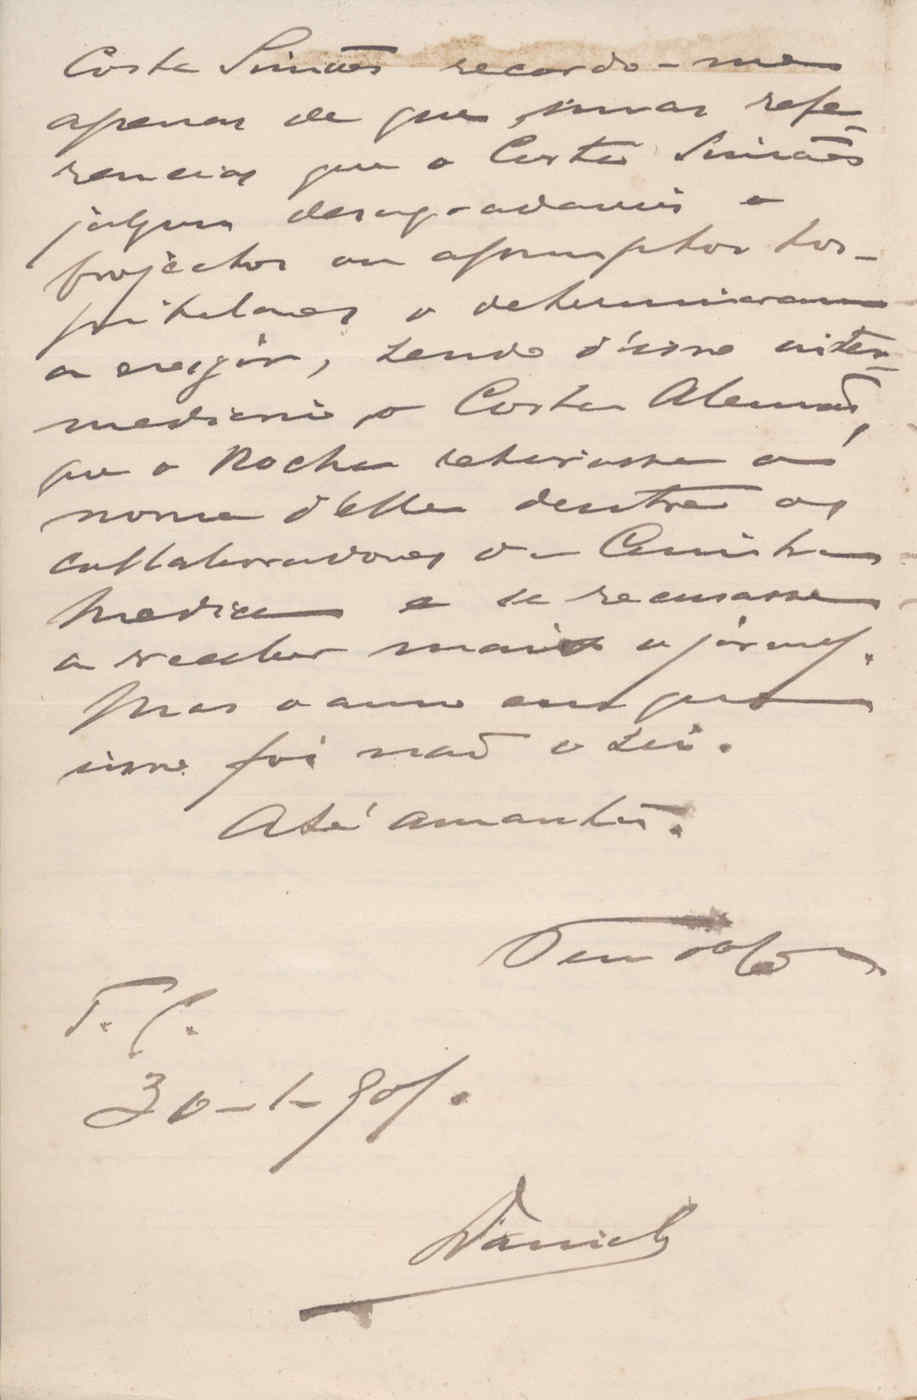 Costa Simões recordo-me
apenas de que umas refe-
rencias que o Costa Simões
julgou desagradaveis a
projectos ou assumptos hos-
pitalares o determinaram
a exigir, sendo d'isso inter-
mediario o Costa Alemão,
que o Rocha retirasse o
nome d'elle dentre os
collaboradores da Coimbra
Medica e se recusasse
a receber mais o jornal.
Mas o anno em que
isso foi não o sei.
Até amanhã.
T. C.
30-1-90
Daniel